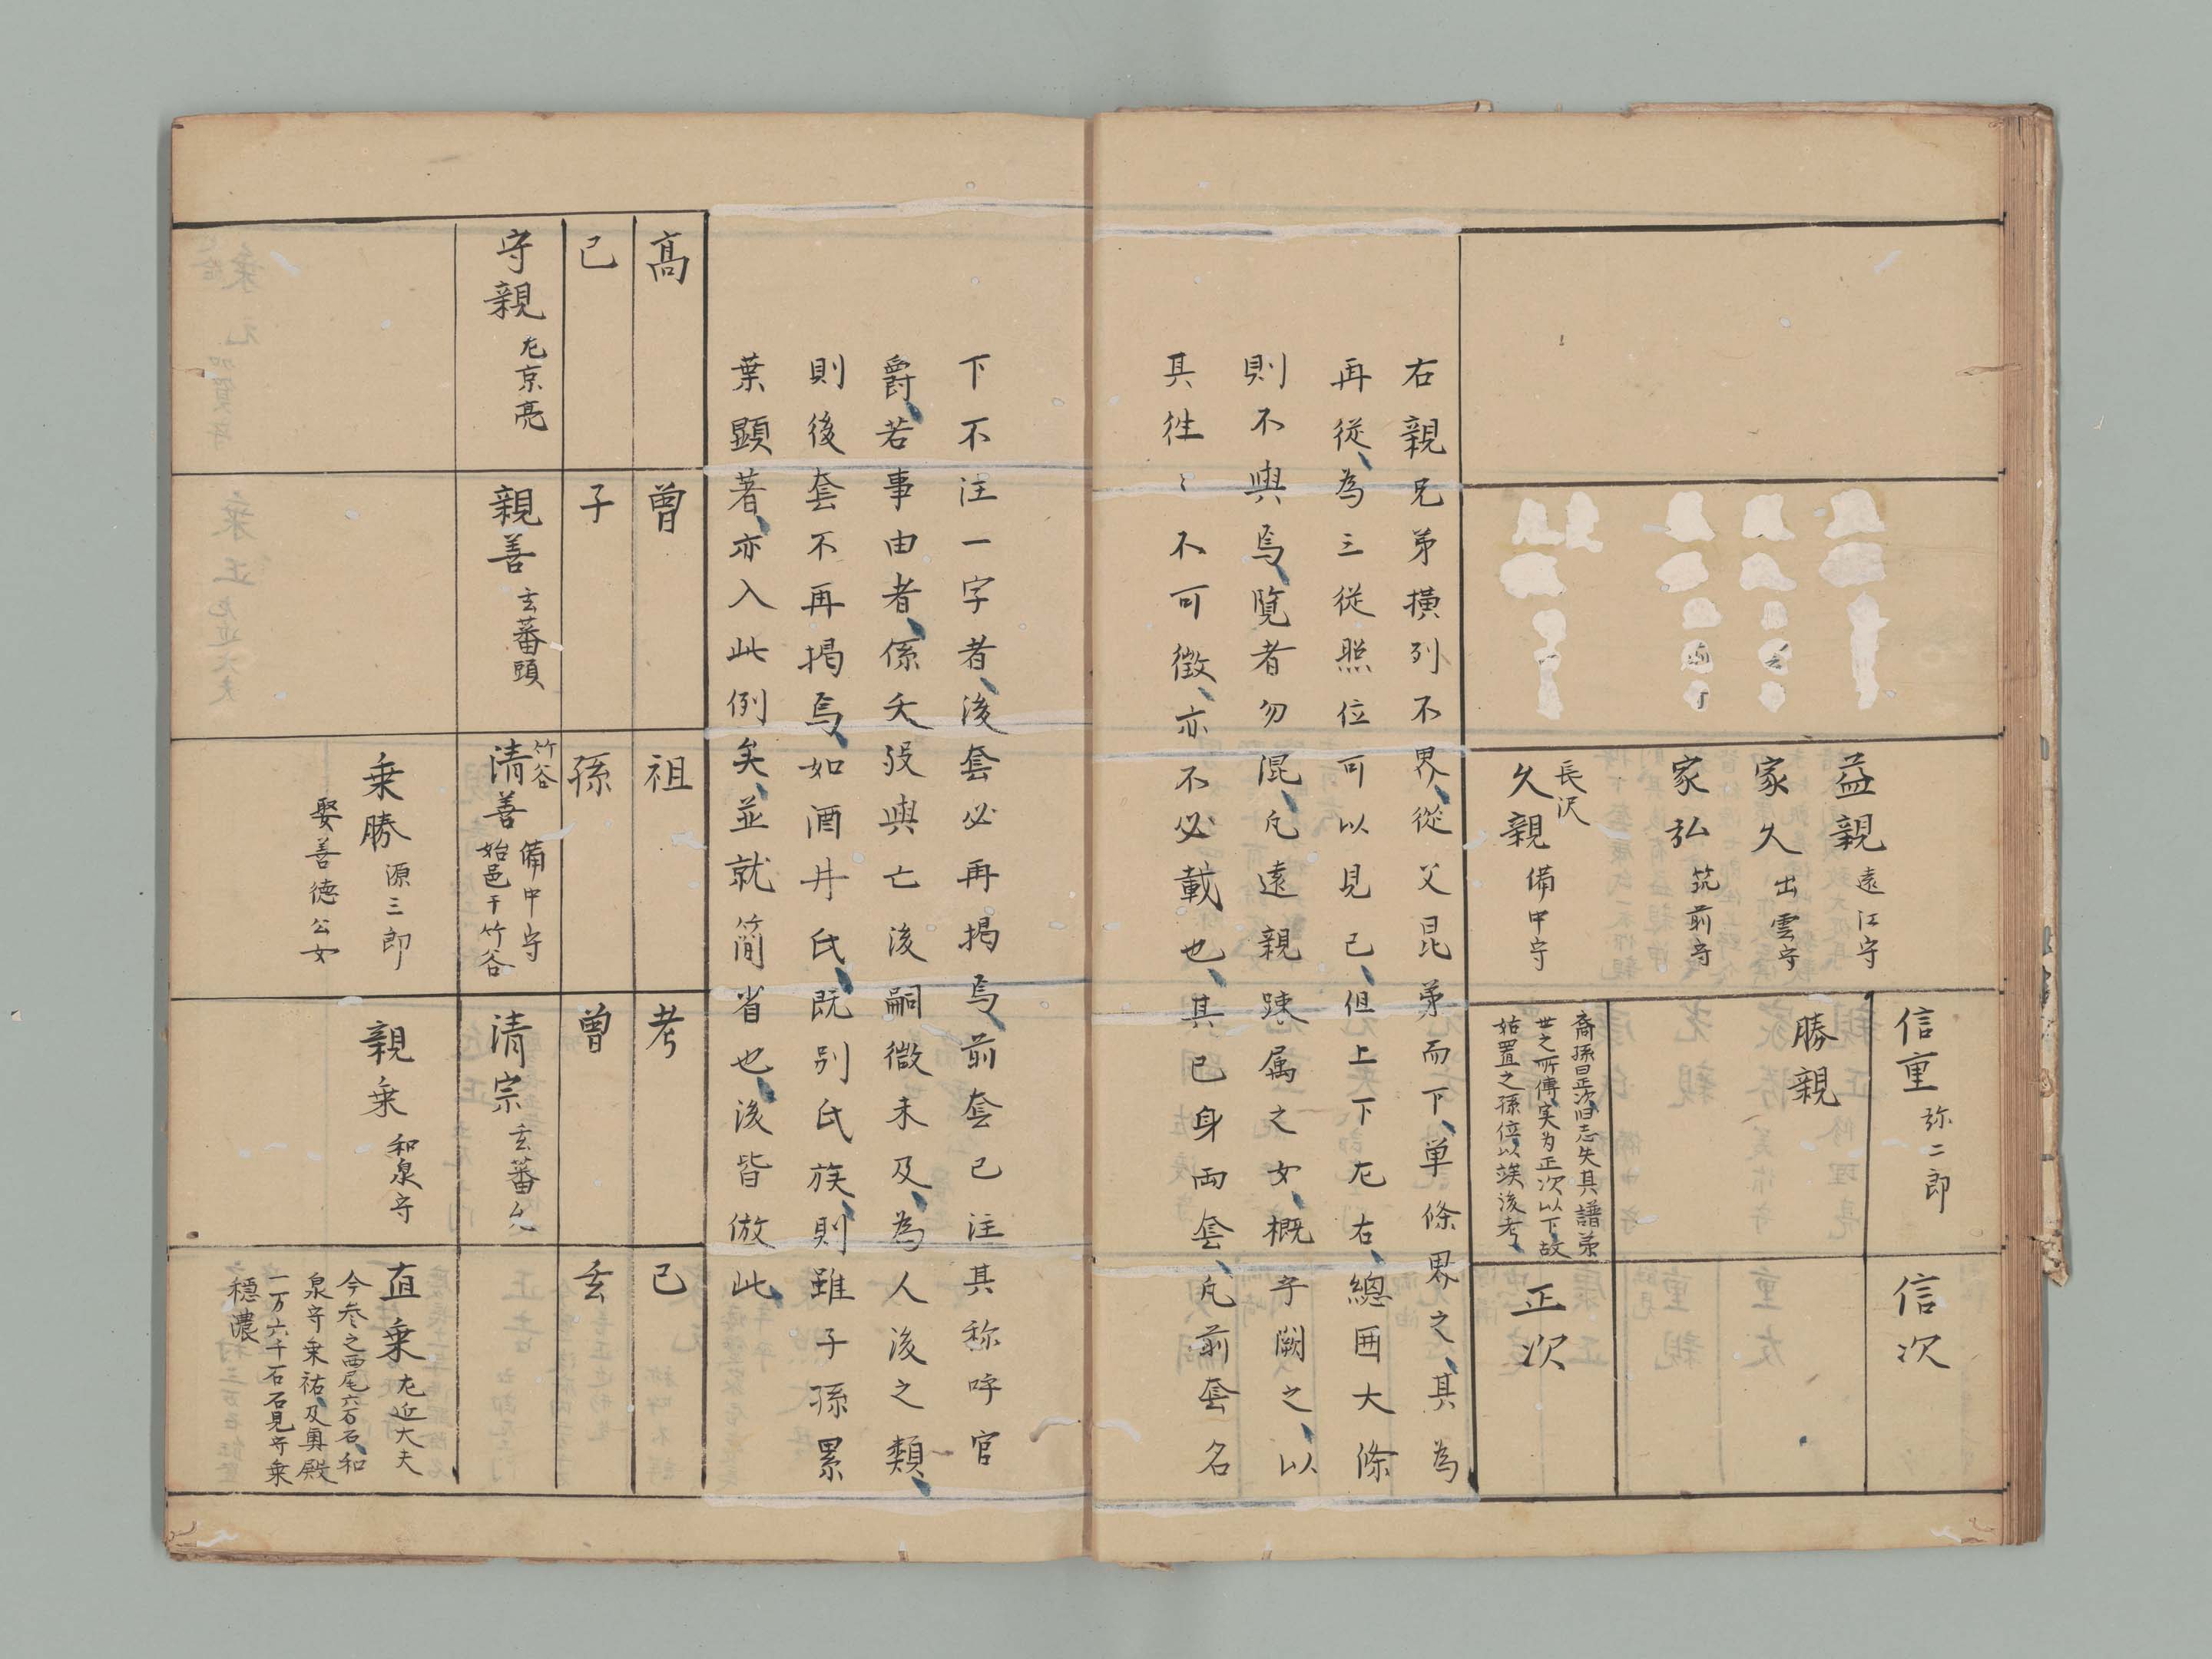 益親 遠江守
家久 出雲守
家弘 筑前守
長沢
久親 備中守
信重 弥二郎
勝親
裔孫曰正次旧志失其譜弟
世之所傳実为正次以下故
姑置之孫位以竢後考
信次
正次
右親兄弟横列不界、從父昆弟而下、単條界之、其為
再從、為三从照位可以見已、但上下尤右、總囲大條
則不與焉、覽者勿混、凡遠親踈属之女、概乎闕之、以
其徃〻不可徴、亦不必載也、其已身両套、凡前套名
下不注一字者、後套必再掲焉、前套已注其称呼官
爵、若事由者、係夭歿與亡後嗣微未及、為人後之類、
則後套不再掲焉、如酒井氏、既別氏族、則雖子孫累
葉顕著、亦入此例矣、並就簡省也、後皆倣此、
高
曽
祖
考
己
己
子
孫
曽
玄
守親 尤京亮
親善 玄蕃頭
竹谷
清善 備中守
始邑于竹谷
清宗 玄蕃允
乗勝 源三郎
娶善徳公女
親乗 和泉守
直乗 尤近大夫
今参之西尾六万石、和
泉守乗祐、及奥殿
一万六千石石見守乗
穏濃